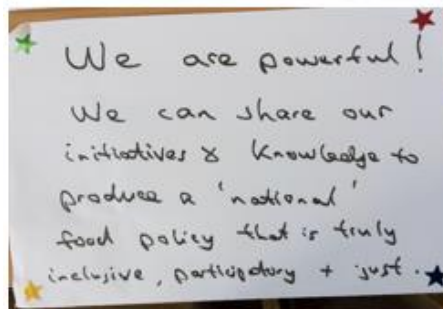 We are powerful!
We can share our
initiatives & knowledge to
produce a 'national'
food policy that is truly
inclusive, participatory + just.